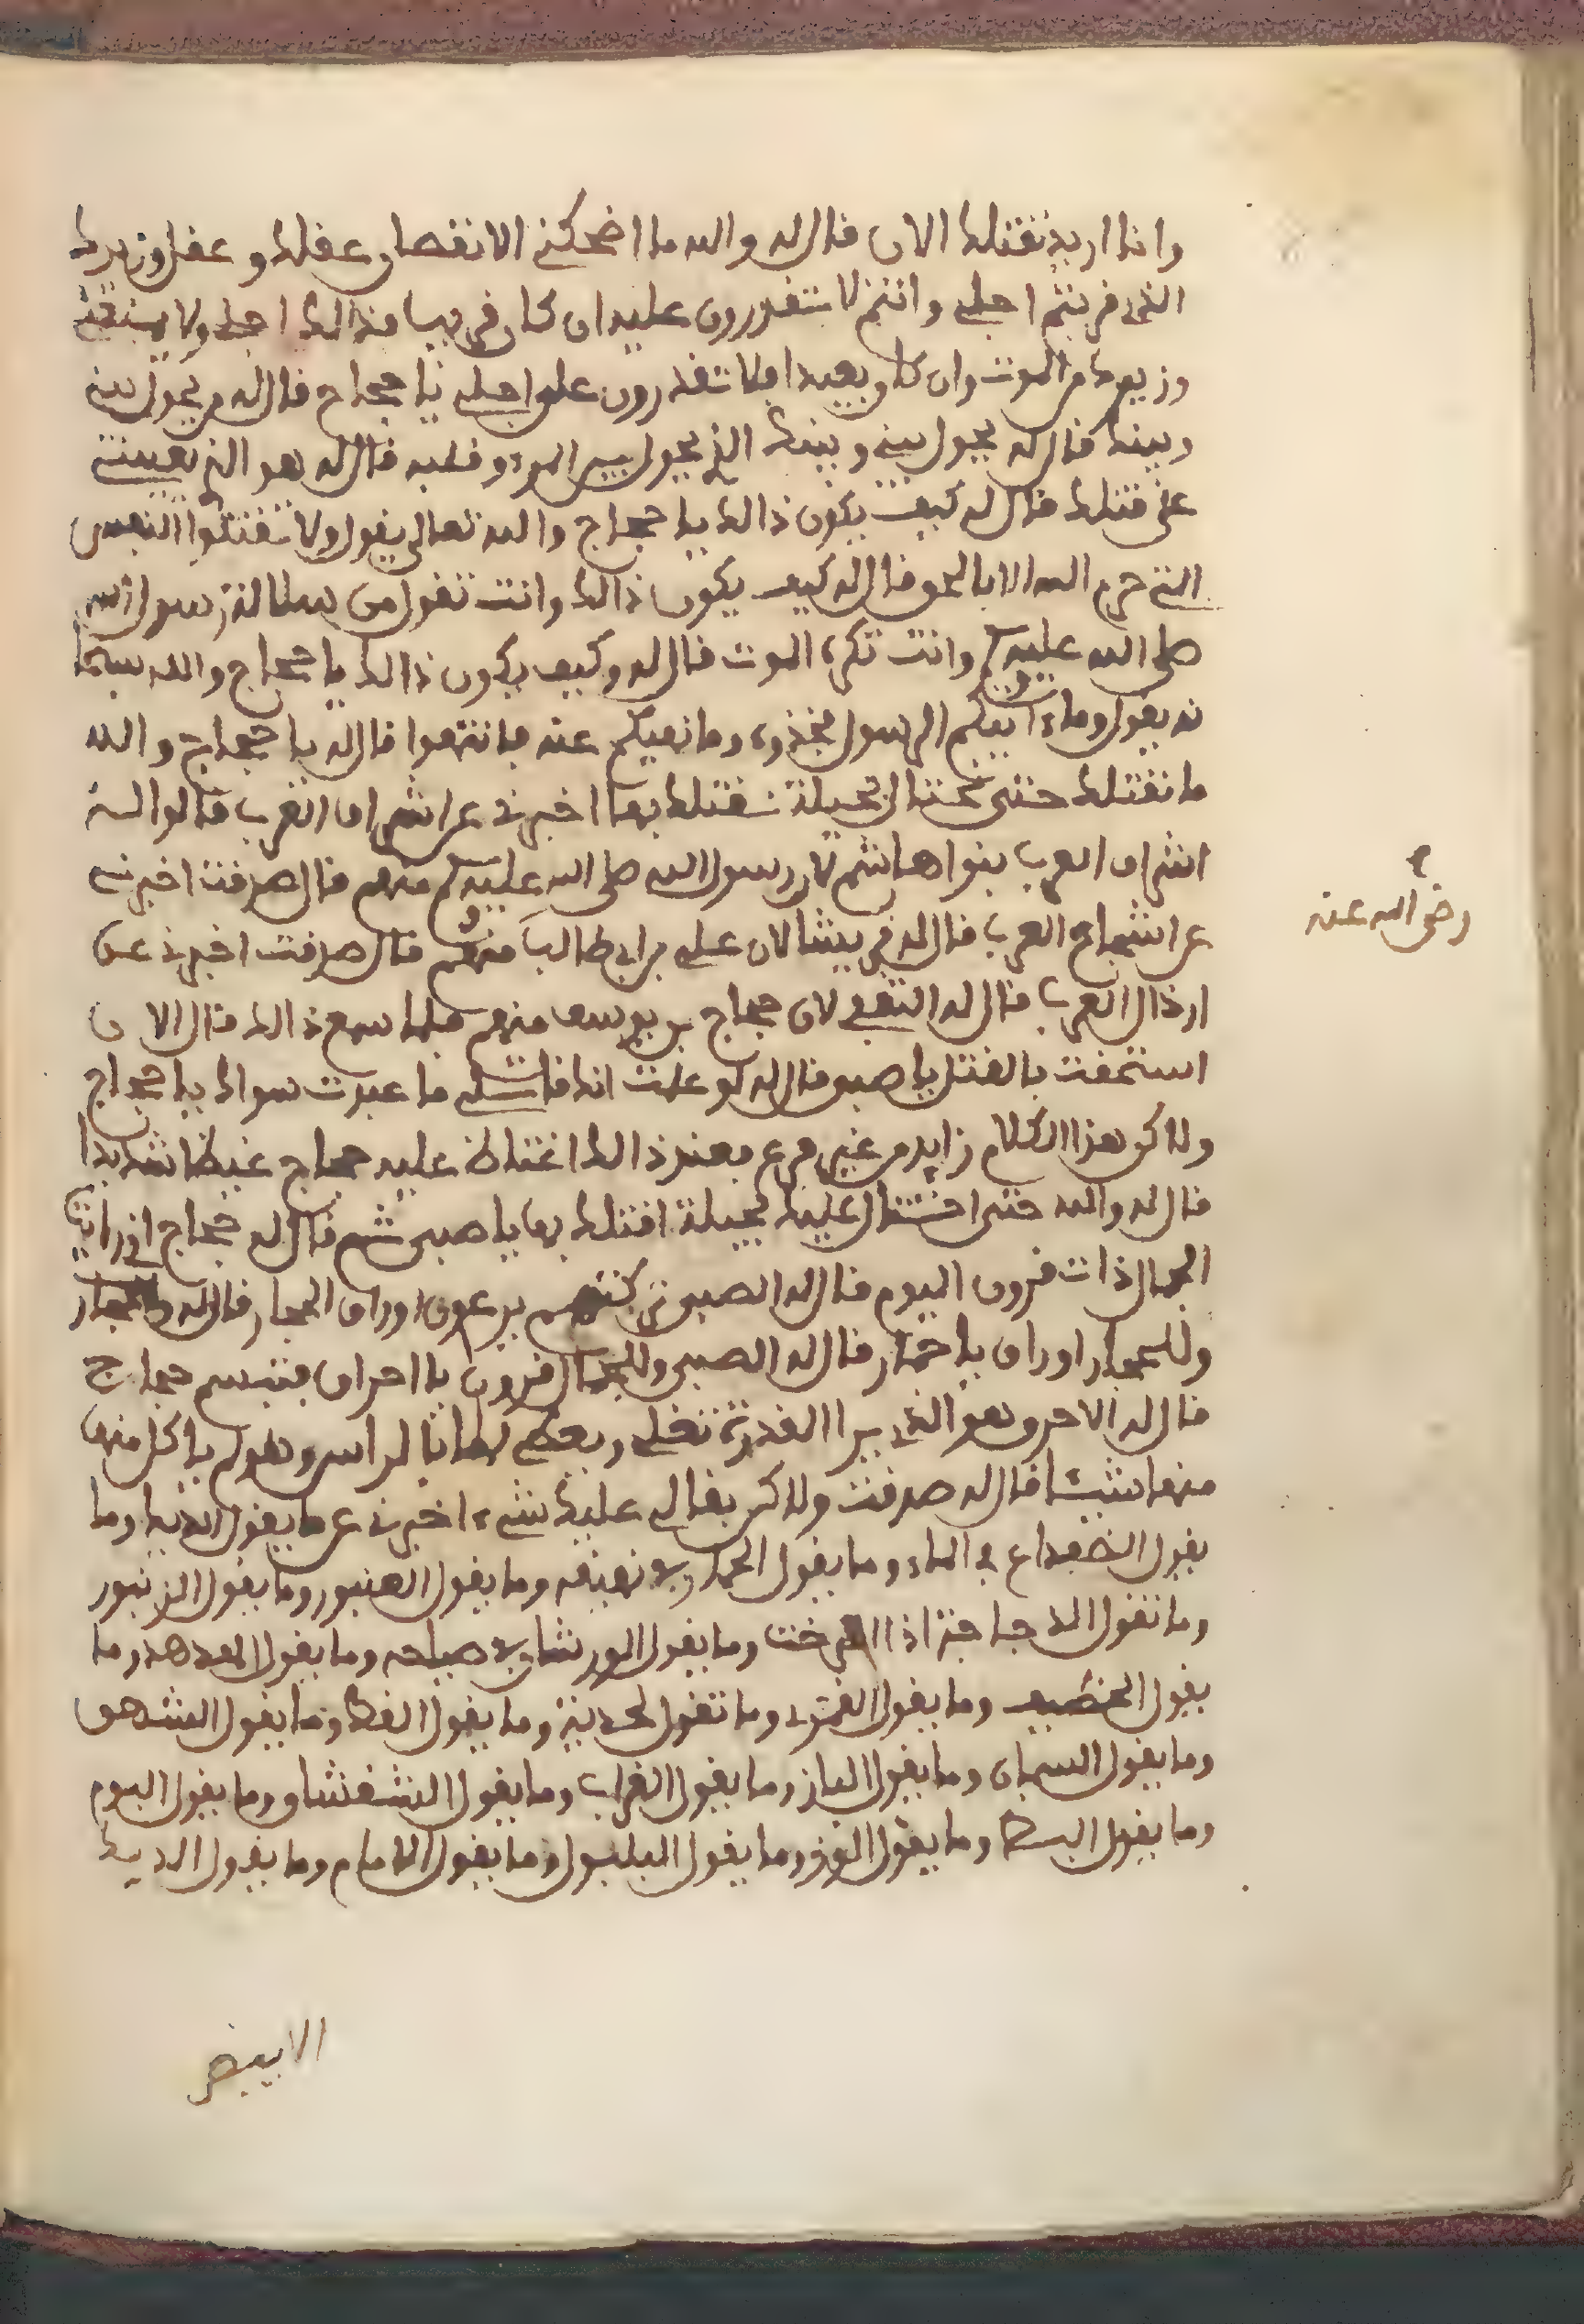 وانا اريد نقتلك الان قال له والله ما اضحكني الا نقصان عقلك وعقل وزيرك
الذي قربتم اجلي وانتم لا تتقدرون عليه ان كان قريبا فذالك اجلي ولا
وزيرك من الموت وان كان بعيدا فلا تقدرون على اجلي يا حجاج قال له من يحول بيني
وبينك قال له يحول بيني وبينك الذي يحول بين المرء وقلبه قال له هو الذي يعينني
على قتلك قال له كيف يكون ذالك يا حجاج والله تعالى يقول ولا تقتلوا النفس
التي حرم الله الا بالحق قال له كيف يكون ذالك وانت تقول من سلالة رسول الله
صلى الله عليه وسلم وانت تكره الموت قال له وكيف يكون ذالك يا حجاج والله سبحا
نه يقول وما ءاتيكم الرسول فخذوه وما نهيكم عنه فانتهوا قال له يا حجاج والله
ما نقتلك حتى نحتال بحيلة نقتلك بها اخبرني عن اشراف العرب قالوا له
اشراف العرب بنوا هاشم لان رسول الله صلى الله عليه وسلم منهم قال صدقت اخبرني
عن اشجاع العرب قال له قريشا لان علي بن ابي طالب منهم قال صدقت اخبرني عن
رضي الله عنه
ارذال العرب قال له الثقفي لان حجاج بن يوسف منهم فلما سمع ذالك قال الان
استحقت بالقتل يا صبي قال له لو علمت انك قاتلي ما عبدت سواك يا حجاج
ولاكن هذا الكلام زايد من غير فرع فعند ذالك اغتاظ عليه حجاج غيظا شديدا
قال له والله حتى احتال عليك بحيلة اقتلك بها يا صبي ثم قال له حجاج اني رايت
الجمال ذات قرون اليوم قال له الصبي تركتهم يرعون اوراق الحجار قال له حجاج
وللحجار اوراق يا حمار قال له الصبي وللجمال قرون يا احراف فتبسم حجاج
قال له الاحر وهو الذي يرا القدرة تغلي ويعطي لها بالراس وهو لم ياكل منها
منها شيئا قال له صدقت ولاكن بقا لي عليك شيء اخبرني عن ما يقول الذيب وما
يقول الضفداع في الماء وما يقول الحمار في نهيقه وما يقول العنبور وما يقول الزنبور
وما تقول الدجاجة اذا اصرخت وما يقول الورشان في صياحه وما يقول الهدهد وما
يقول الخطيف وما يقول القمري وما تقول الحدية وما يقول القطا وما يقول الشهق
وما يقول السمان وما يقول الباز وما يقول الغراب وما يقول الشقشاق وما يقول البوم
وما يقول البط وما يقول الوز وما يقول البلبول وما يقول الامام وما يقول الديك
الابيض